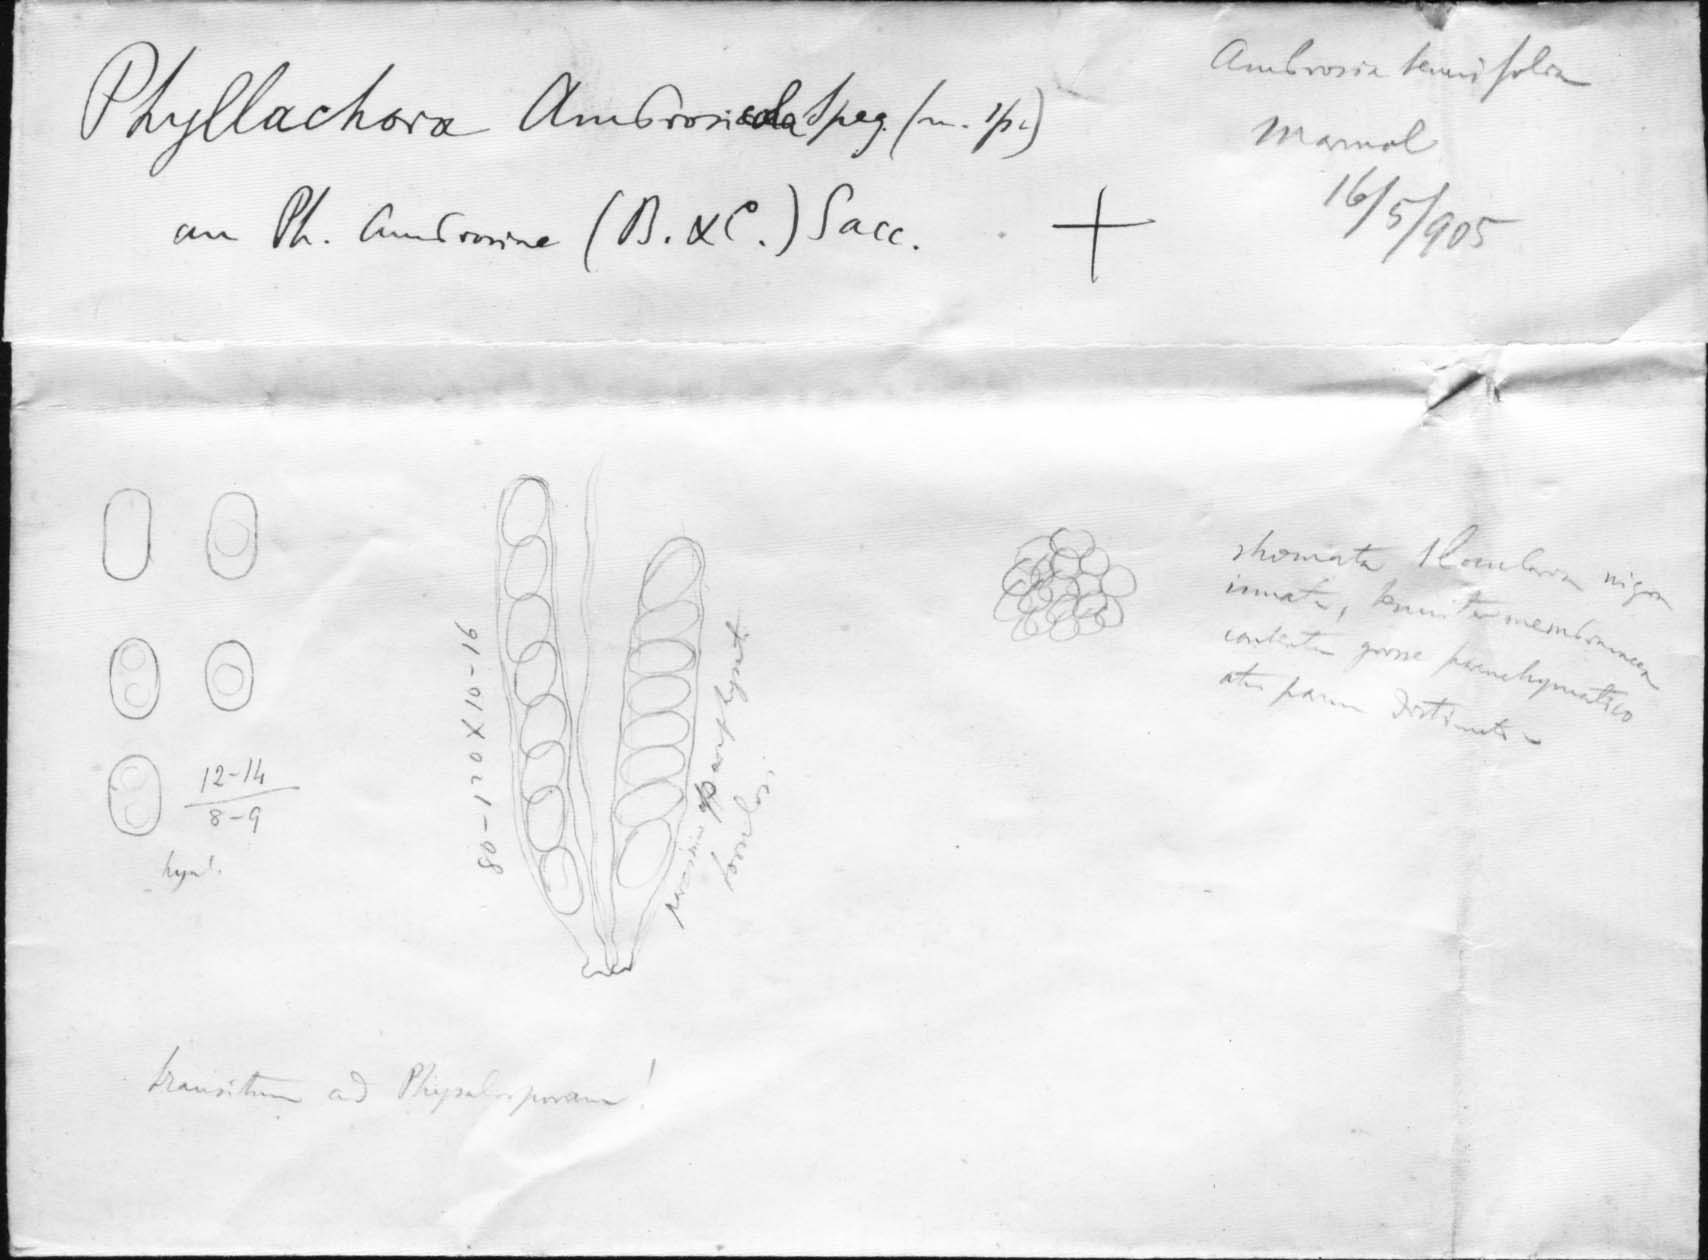 Phyllachora Ambrosicola Speg. (n. sp.)
an Ph. Ambrosiae (B. & C.) Sacc. +
Ambrosia tenuifolia
Marmol
16/5/905
12-14
8-9
hyal.
80-120X10-16
paraphysat.
stromata 1locularia nigra
innata, tenuiter membranacea
contextu grosse parenchymatico
parum distincto
transitum ad Physalosporam!